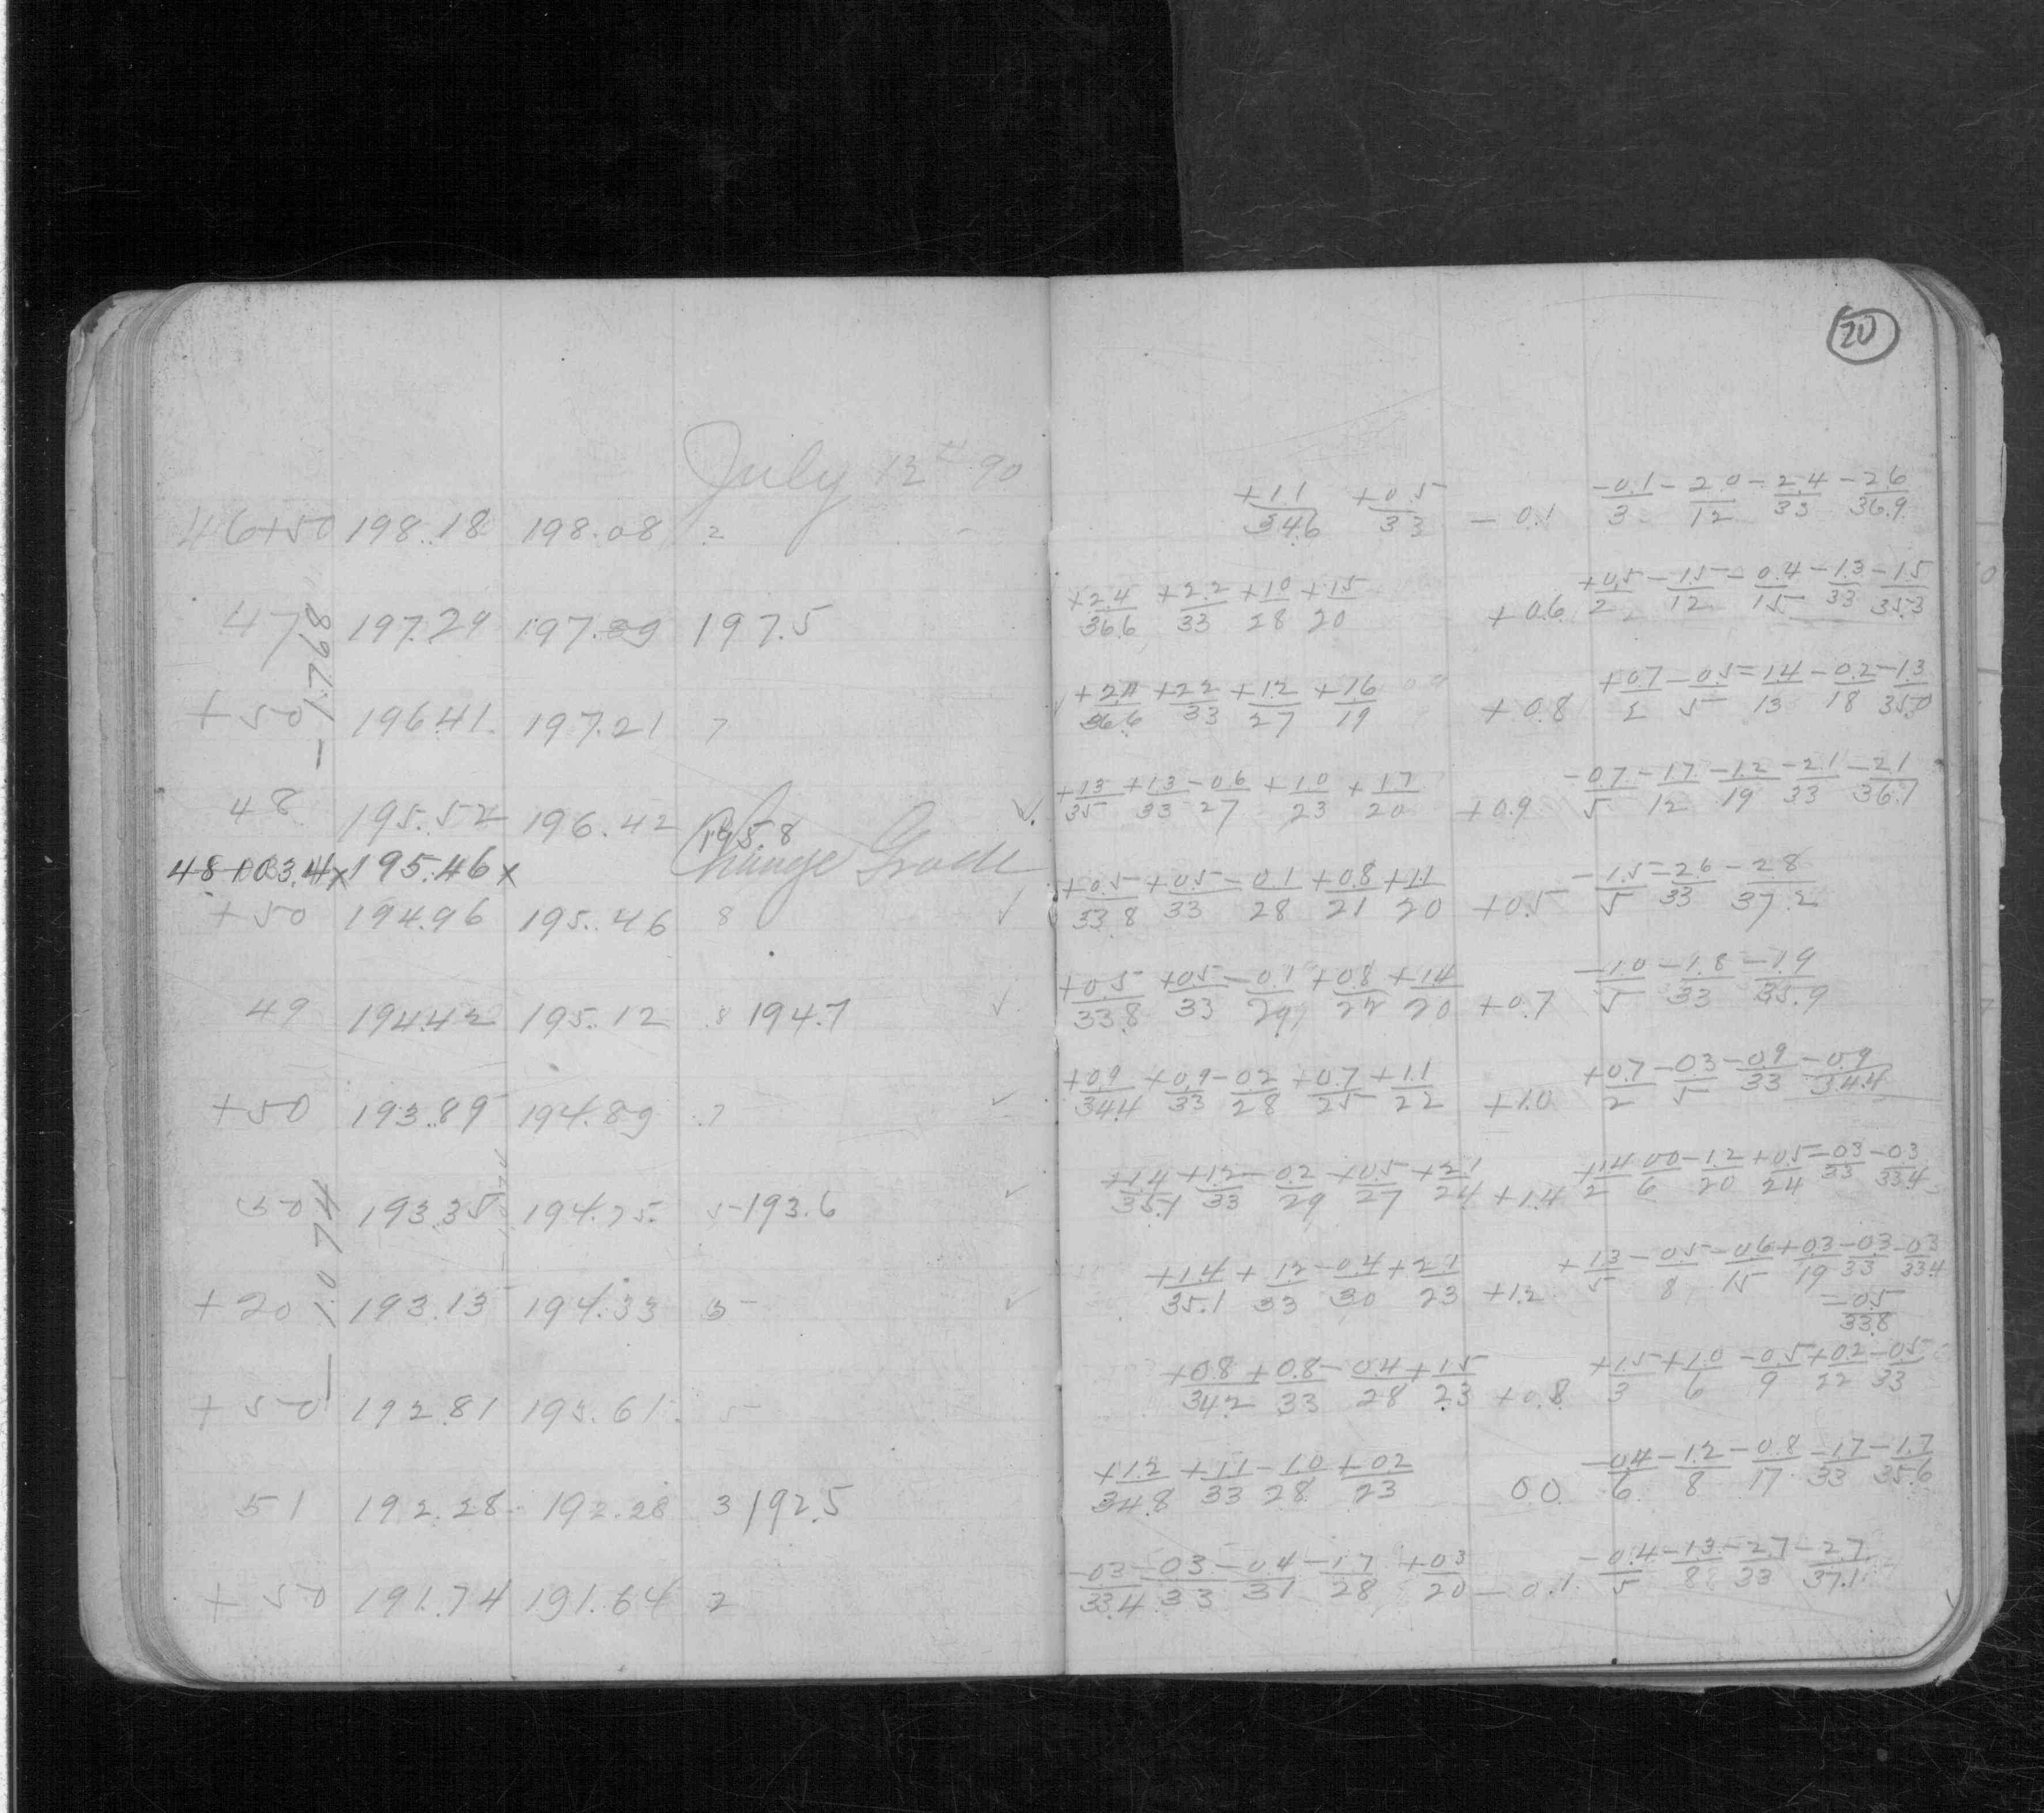 20
July 12th 90
46+50 198.18 198.08 2
+1.1/34.6 +0.5/33 -0.1 -0.1/3 -2.0/12 -2.4/33 -2.6/36.9
47 197.29 197.89 197.5
+2.4/36.6 +2.2/33 +1.0/28 +1.5/20 +0.6 +0.5/2 -1.5/12 -0.4/15 -1.3/33 -1.5/35.3
-1.768
+50 196.41 197.21 7
+2.4/36.6 +2.2/33 +1.2/27 +1.6/19 +0.8 +0.7/2 -0.5/5 -1.4/13 -0.2/18 -1.3/35.0
48 195.52 196.42 195.8 ✓
+1.3/35 +1.3/33 -0.6/27 +1.0/23 +1.7/20 +0.9 -0.7/5 -1.7/12 -1.2/19 -2.1/33 -2.1/36.7
48+03.4x 195.46x Change Grade
+50 194.96 195.46 8 ✓
+0.5/33.8 +0.5/33 -0.1/28 +0.8/21 +1.1/20 +0.5 -1.5/5 -2.6/33 -2.8/37.2
49 194.42 195.12 8 194.7 ✓
+0.5/33.8 +0.5/33 -0.1/29 +0.8/22 +1.4/20 +0.7 -1.0/5 -1.8/33 -1.9/35.9
+50 193.89 194.89 7 ✓
+0.9/34.4 +0.9/33 -0.2/28 +0.7/25 +1.1/22 +1.0 +0.7/2 -0.3/5 -0.9/33 -0.9/34.4
50 193.35 194.75 5 193.6 ✓
+1.4/35.1 +1.2/33 -0.2/29 +0.5/27 +2.1/24 +1.4 +1.4/2 0.0/6 -1.2/20 +0.5/24 -0.3/33 -0.3/33.4
-1.074
+20 193.13 194.33 5 ✓
+1.4/35.1 +1.2/33 -0.4/30 +2.1/23 +1.2 +1.3/5 -0.5/8 -0.6/15 +0.3/19 -0.3/33 -0.3/33.4
-0.5/33.8
+50 192.81 193.61 5
+0.8/34.2 +0.8/33 -0.4/28 +1.5/23 +0.8 +1.5/3 +1.0/6 -0.5/9 +0.2/22 -0.5/33
51 192.28 192.28 3 192.5
+1.2/34.8 +1.1/33 -1.0/28 +0.2/23 0.0 -0.4/6 -1.2/8 -0.8/17 -1.7/33 -1.7/35.6
+50 191.74 191.64 2
-0.3/33.4 -0.3/33 -0.4/31 -1.7/28 +0.3/20 -0.1 -0.4/5 -1.3/8 -2.7/33 -2.7/37.1